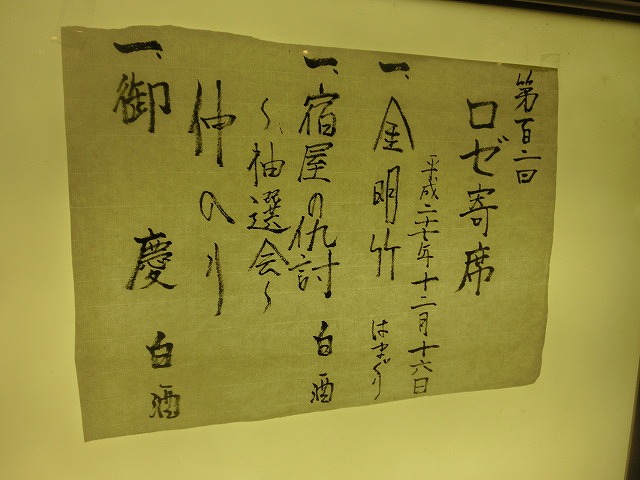 第百二回
ロゼ寄席
平成二十七年十二月十六日
一、金明竹 はまぐり
一、宿屋の仇討 白酒
〜抽選会〜
仲のり
一、御慶 白酒